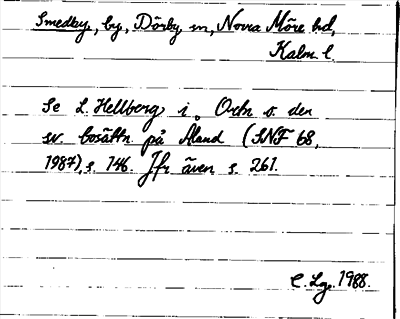 Smedby, by, Dörby sn, Norra Möre hd,
Kalm. l.
Se L. Hellberg i Ortn o. den
sv. bosättn på Åland (SNF 68,
1987), s. 146. Jfr även s. 261.
C. Lg. 1988.